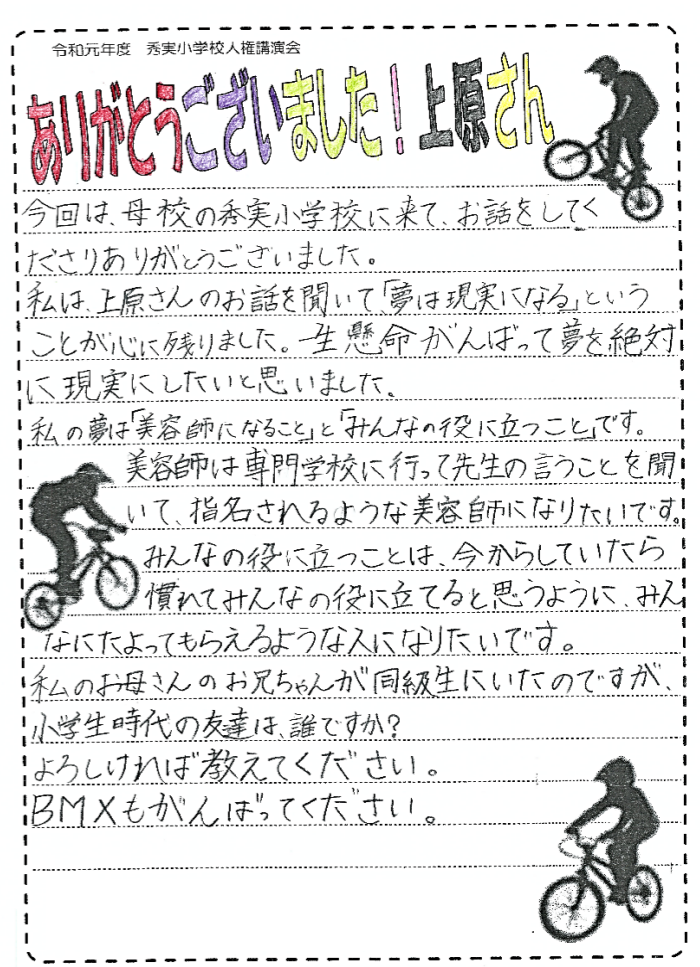 令和元年度　秀実小学校人権講演会
ありがとうございました！上原さん
今回は、母校の秀実小学校に来て、お話をしてく
ださりありがとうございました。
私は、上原さんのお話を聞いて、「夢は現実になる」という
ことが心に残りました。一生懸命がんばって夢を絶対
に現実にしたいと思いました。
私の夢は「美容師になること」と「みんなの役に立つこと」です。
美容師は専門学校に行って先生の言うことを聞
いて、指名されるような美容師になりたいです。
みんなの役に立つことは、今からしていたら
慣れてみんなの役に立てると思うように、みん
なにたよってもらえるような人になりたいです。
私のお母さんのお兄ちゃんが同級生にいたのですが、
小学生時代の友達は、誰ですか？
よろしければ教えてください。
BMXもがんばってください。